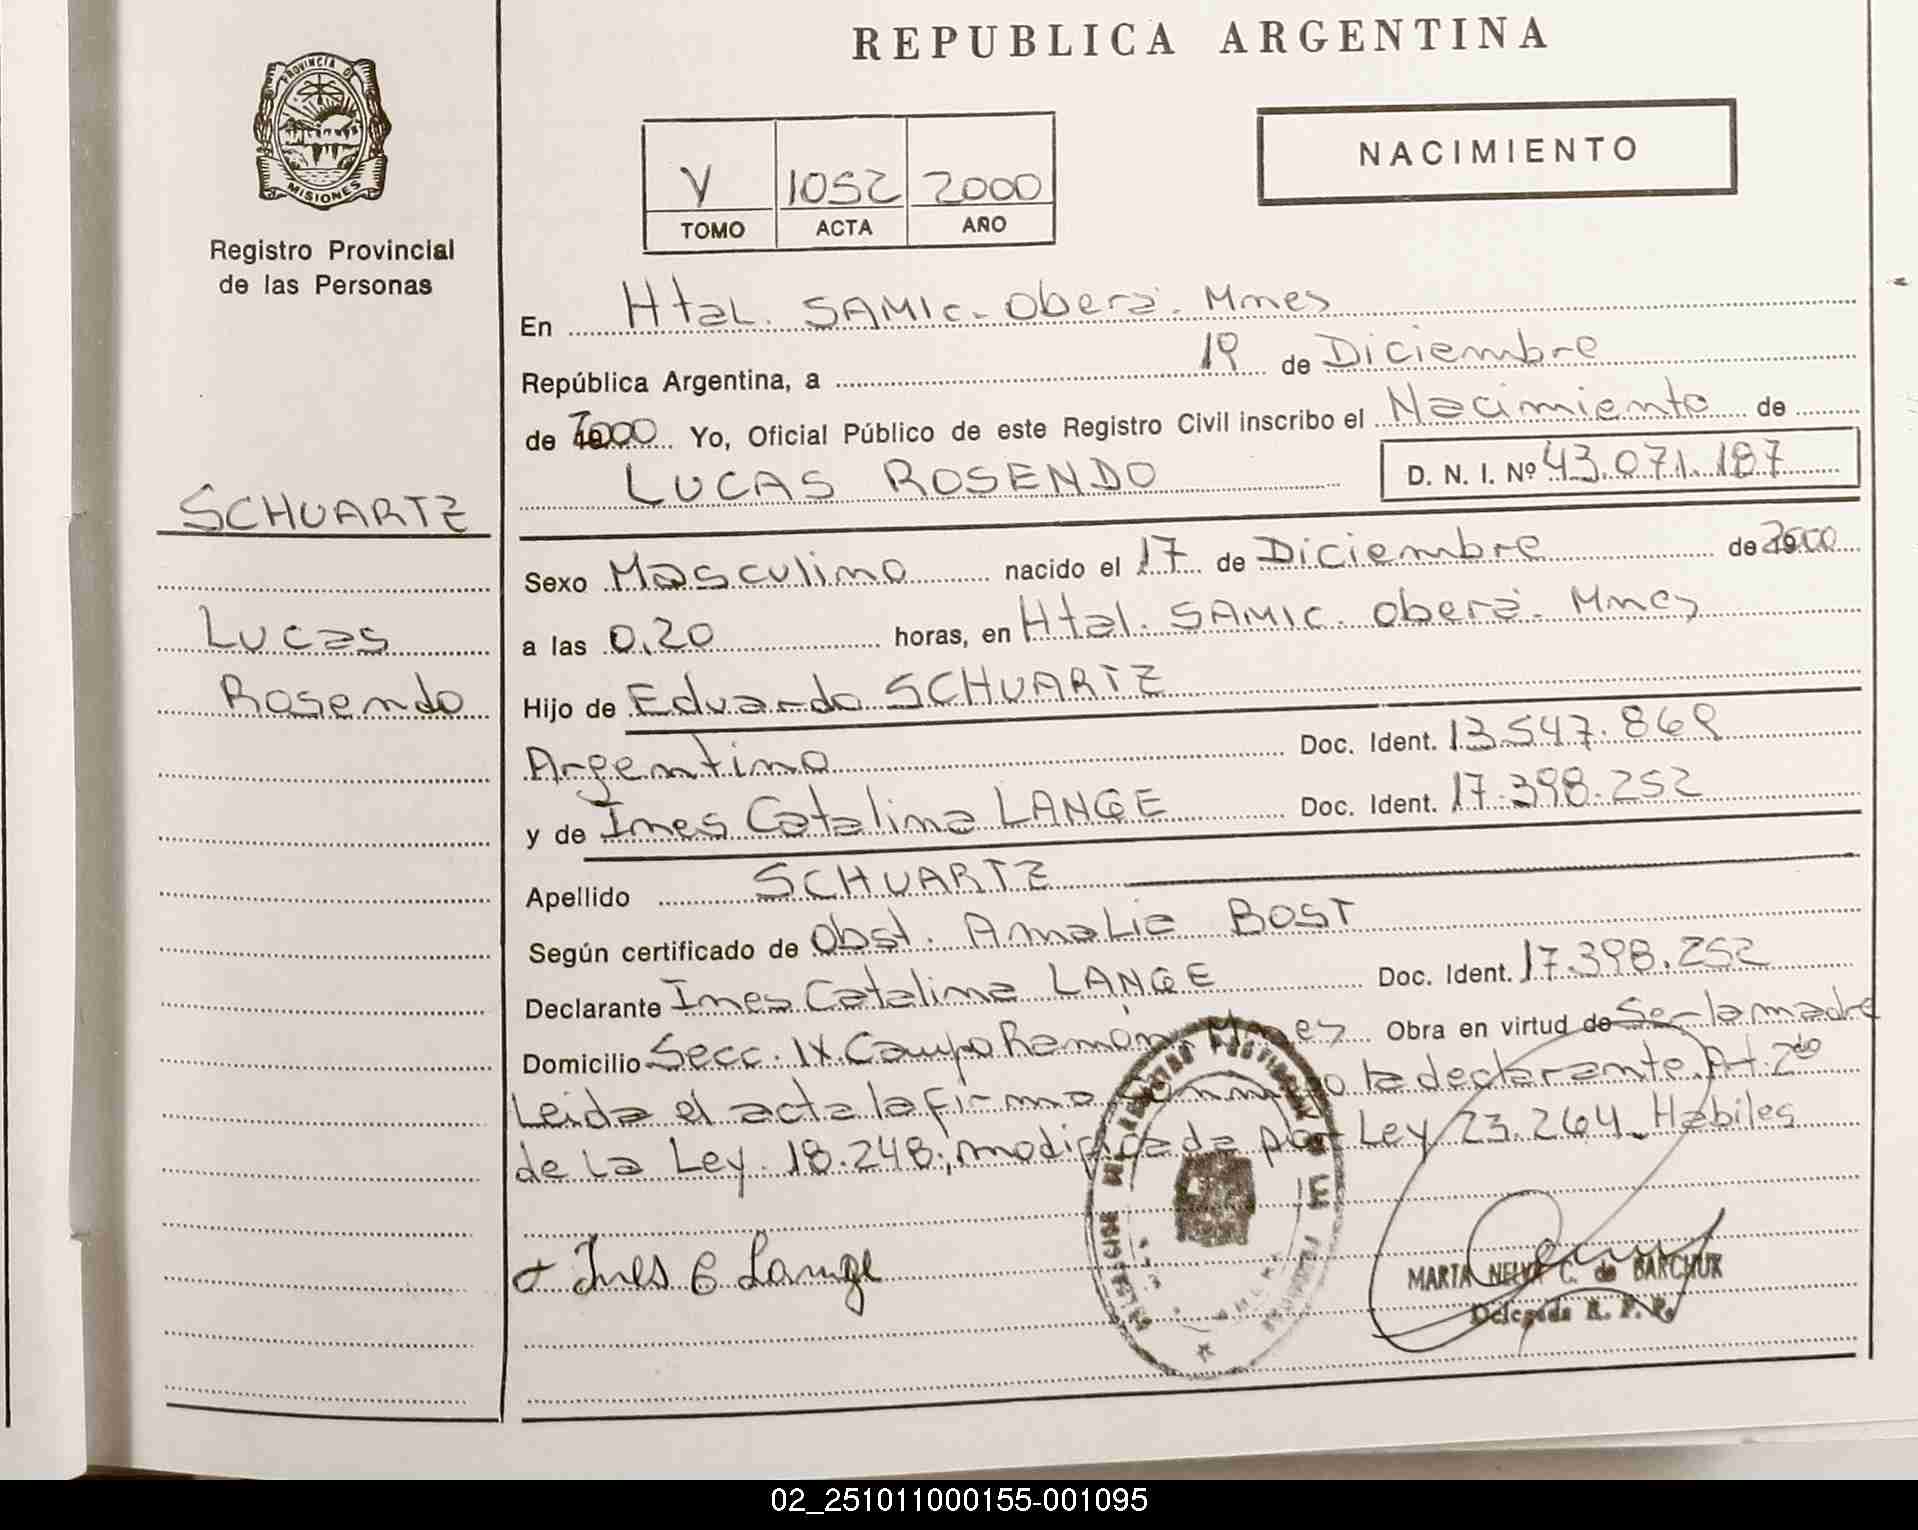 REPUBLICA ARGENTINA
PROVINCIA DE
MISIONES
Registro Provincial
de las Personas
V 1052 2000
TOMO ACTA AÑO
NACIMIENTO
En Htal. SAMIC. Oberá. Mnes
República Argentina, a 19 de Diciembre
de 2000 Yo, Oficial Público de este Registro Civil inscribo el Nacimiento de
LUCAS ROSENDO D. N. I. Nº 43.071.187
SCHUARTZ
Lucas
Rosendo
Sexo Masculino nacido el 17 de Diciembre de 2000
a las 0.20 horas, en Htal. SAMIC. Oberá. Mnes
Hijo de Eduardo SCHUARTZ
Argentino Doc. Ident. 13.547.869
y de Ines Catalina LANGE Doc. Ident. 17.398.252
Apellido SCHUARTZ
Según certificado de Obst. Amalia BOST
Declarante Ines Catalina LANGE Doc. Ident. 17.398.252
Domicilio Secc. IX. Campo Ramón. Mnes Obra en virtud de Ser la madre
Leida el acta la firma conmigo la declarante. At. 2do
de la Ley 18.248, modificada por Ley 23.264. Habiles
Ines C Lange
MARTA NELVA C. de BARCHUK
Delegada R. P. P.
02_251011000155-001095